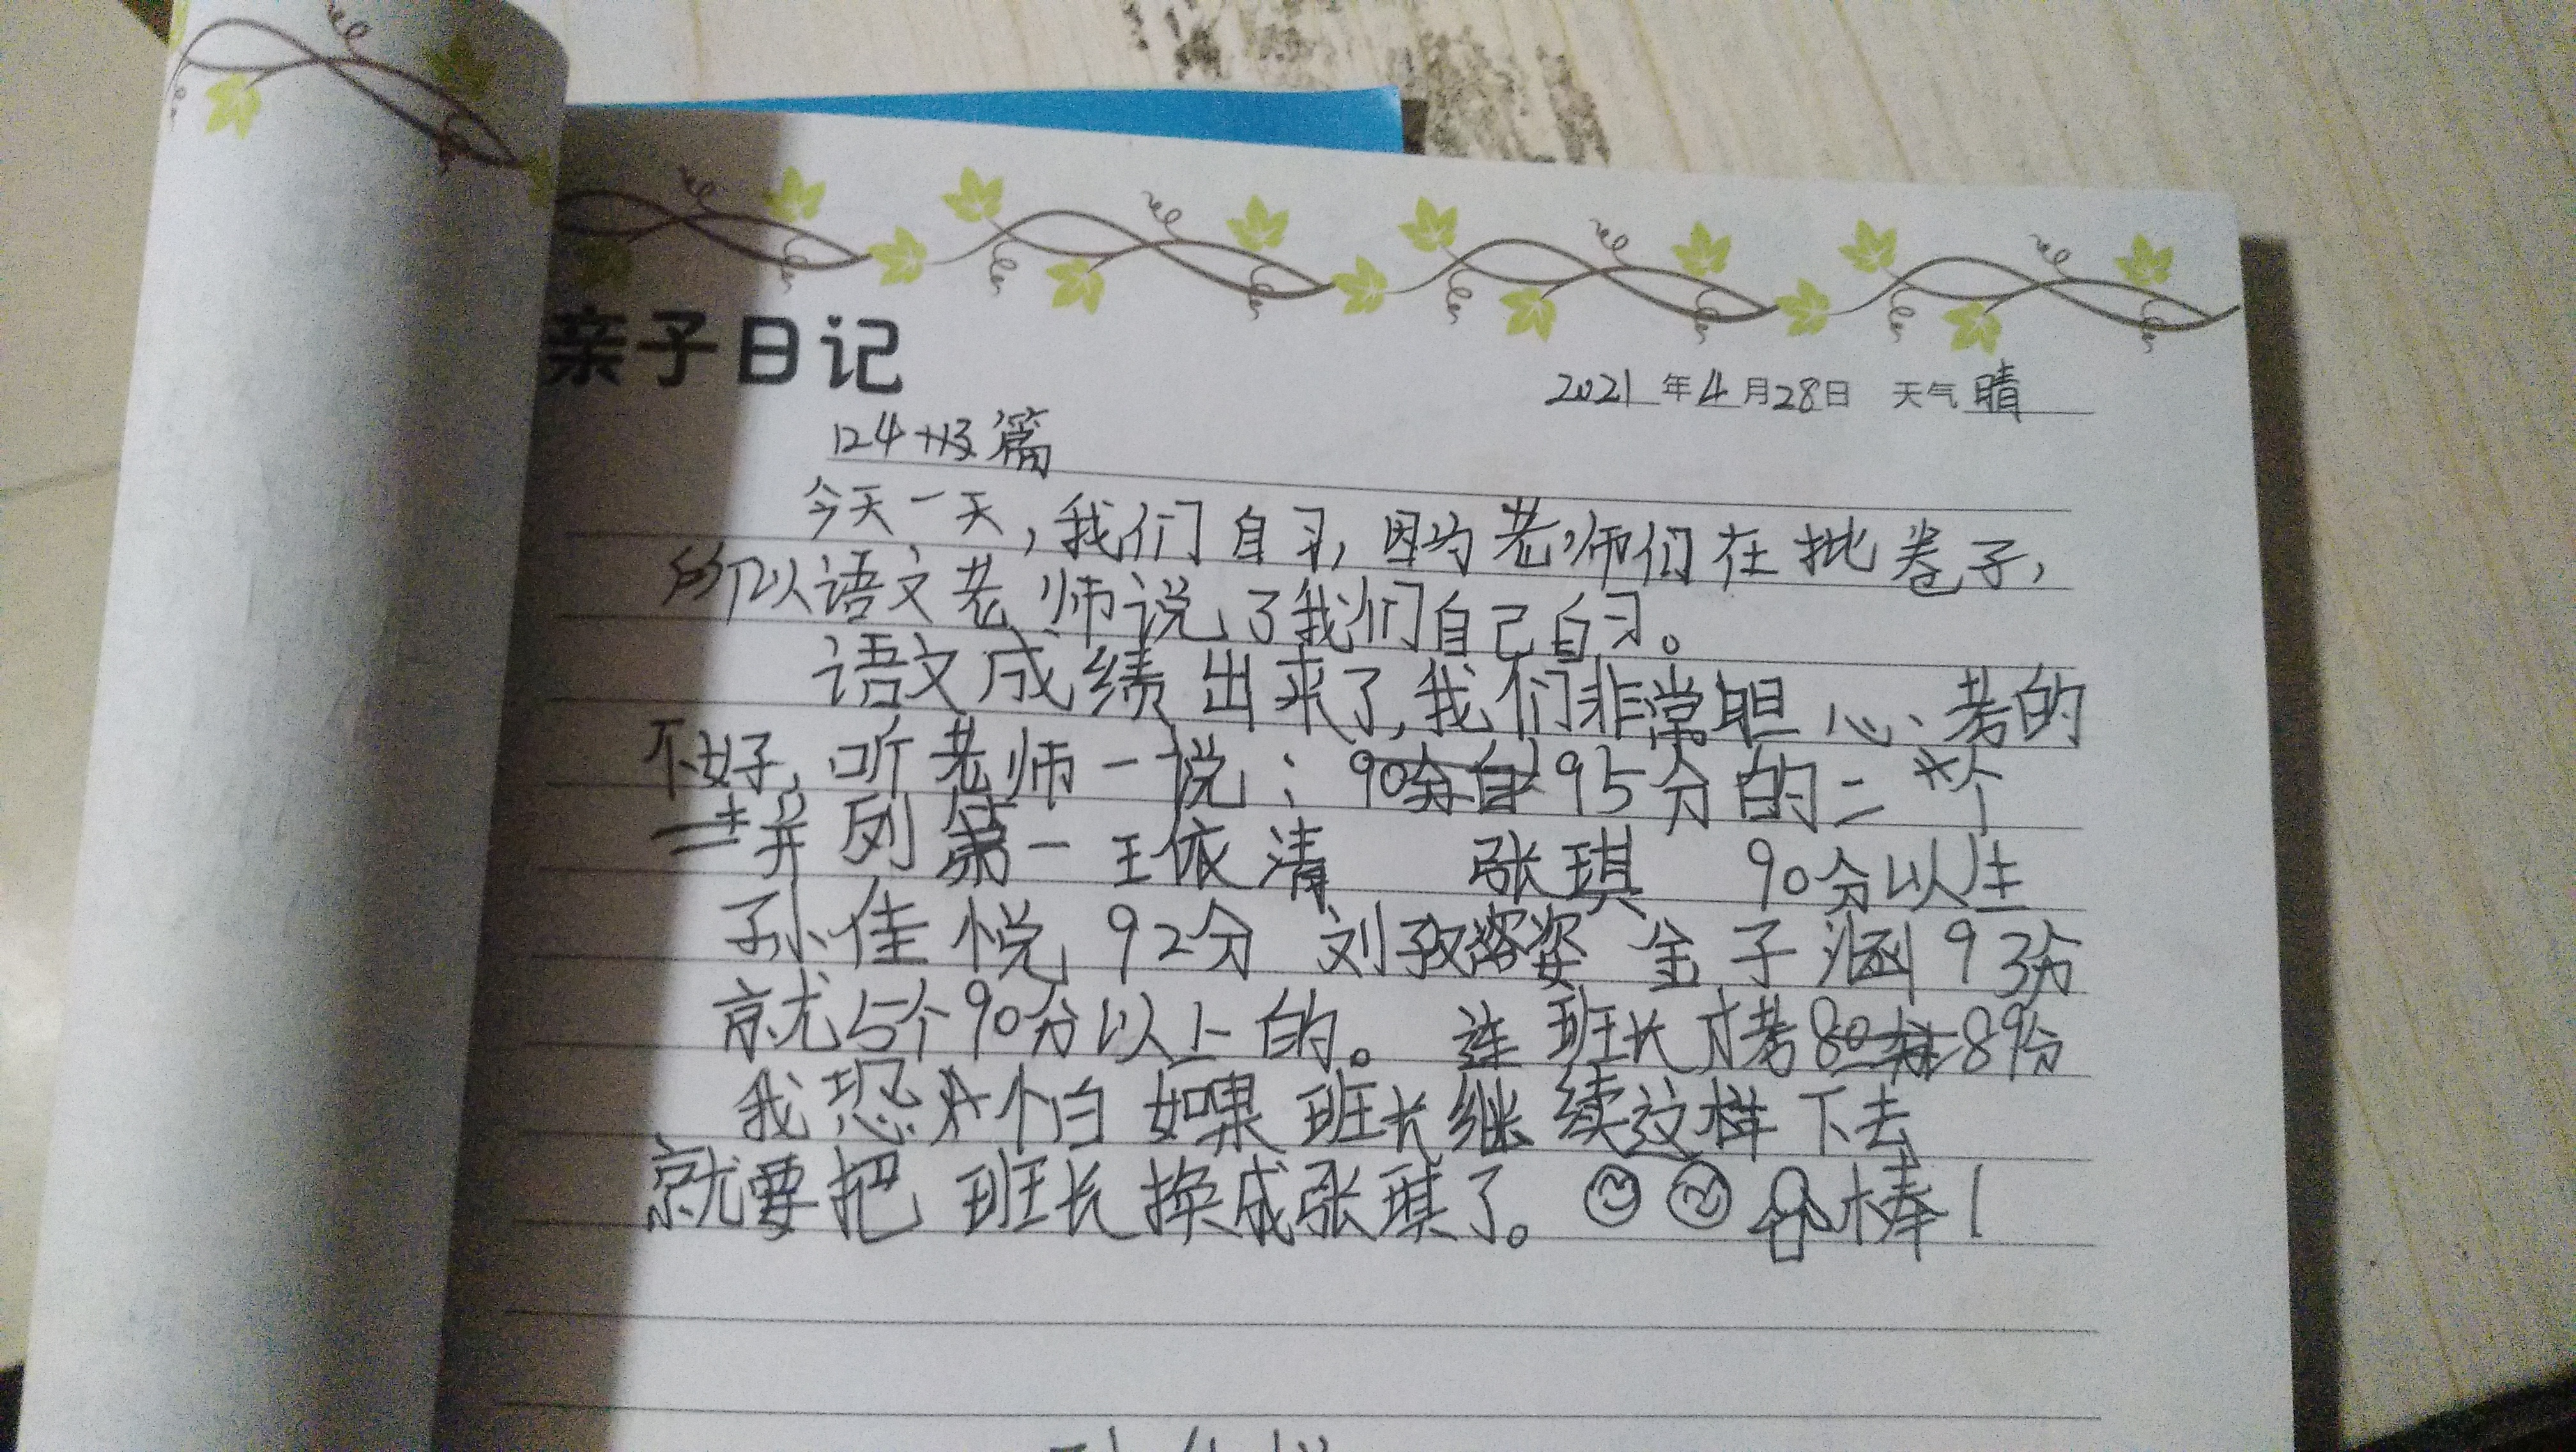 亲子日记
2021年4月28日 天气晴
124 篇
今天一天,我们自习,因为老师们在批卷子,
所以语文老师说了我们自己自习。
语文成绩出来了,我们非常胆心、考的
不好,听老师一说:95分的二个
并列第一王依清 张琪 90分以上
孙佳悦 92分 刘孜 姿 金子涵 93分
就5个90分以上的。连班长才考89分
我恐怕如果班长继续这样下去
就要把班长换成张琪了。棒!